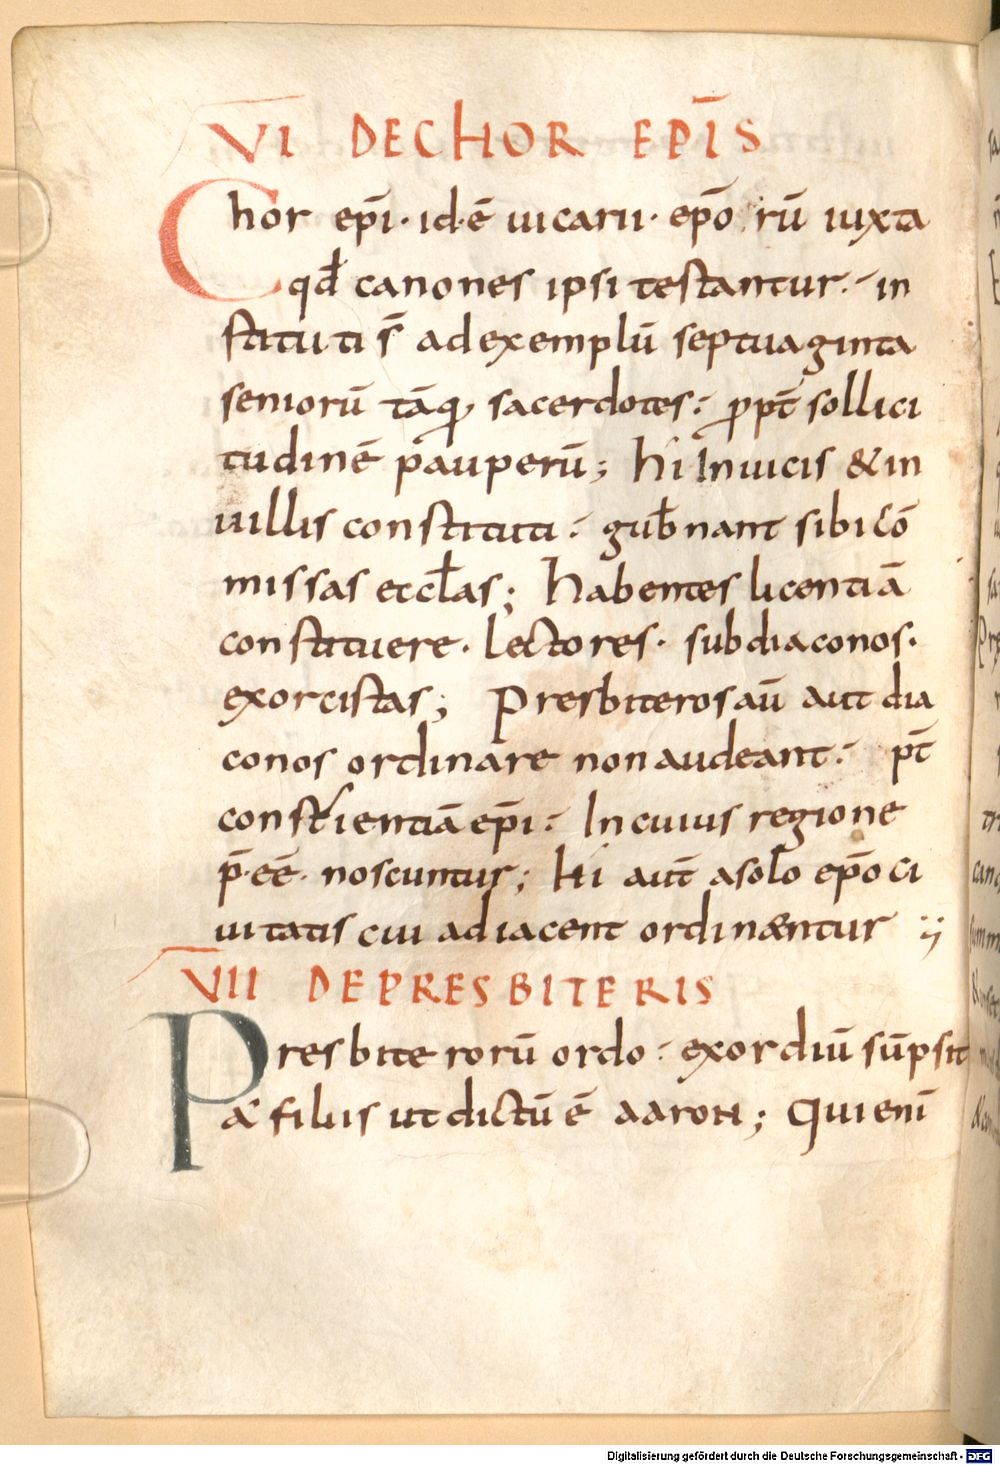 VI DE CHOR EPĪS
Chor epī· id·ē uicarii· epōrū iuxta
qđ canones ipsi testantur· in
statuti s̄ ad exemplū septuaginta
seniorū tāq sacerdotes· ppt̄ sollici
tudinē pauperū; hi In uicis & in
uillis constituti· gub̄nant sibi cō
missas eccl̄as; habentes licentiā
constituere· lectores· subdiaconos·
exorcistas; Presbiteros aū aut dia
conos ordinare non audeant· pt̄
conscientiā epī· In cuius regione
p̄·eē· noscuntur; Hi aut̄ a solo epō ci
uitatis cui adiacent ordinentur
VII DE PRESBITERIS
Presbiterorū ordo· exordiū sūpsit
a filiis ut dictū ē aaron; Qui enī
Digitalisierung gefördert durch die Deutsche Forschungsgemeinschaft - DFG